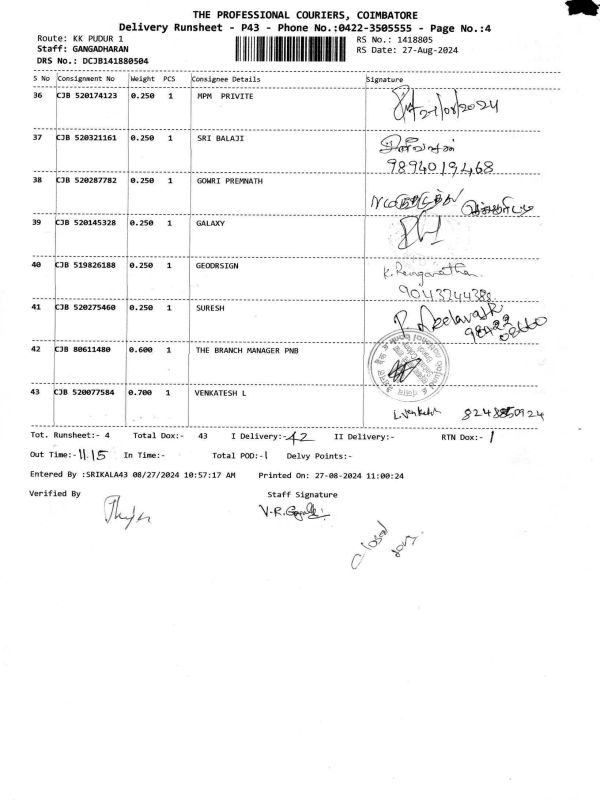 THE PROFESSIONAL COURIERS, COIMBATORE
Delivery Runsheet - P43 - Phone No.:0422-3505555 - Page No.:4
Route: KK PUDUR 1
RS No.: 1418805
Staff: GANGADHARAN
RS Date: 27-Aug-2024
DRS No.: DCJB141880504
S No Consignment No Weight PCS Consignee Details Signature
36 CJB 520174123 0.250 1 MPM PRIVITE
27/08/2024
37 CJB 520321161 0.250 1 SRI BALAJI
9894019468
38 CJB 520287782 0.250 1 GOWRI PREMNATH
39 CJB 520145328 0.250 1 GALAXY
40 CJB 519826188 0.250 1 GEODRSIGN
K. Renganathan
41 CJB 520275460 0.250 1 SURESH
P. Neelavathi
42 CJB 80611480 0.600 1 THE BRANCH MANAGER PNB
43 CJB 520077584 0.700 1 VENKATESH L
L. Venkatesh
Tot. Runsheet:- 4 Total Dox:- 43 I Delivery:- 42 II Delivery:- RTN Dox:- 1
Out Time:- 11.15 In Time:- Total POD:- 1 Delvy Points:-
Entered By :SRIKALA43 08/27/2024 10:57:17 AM Printed On: 27-08-2024 11:00:24
Verified By Staff Signature
Closed